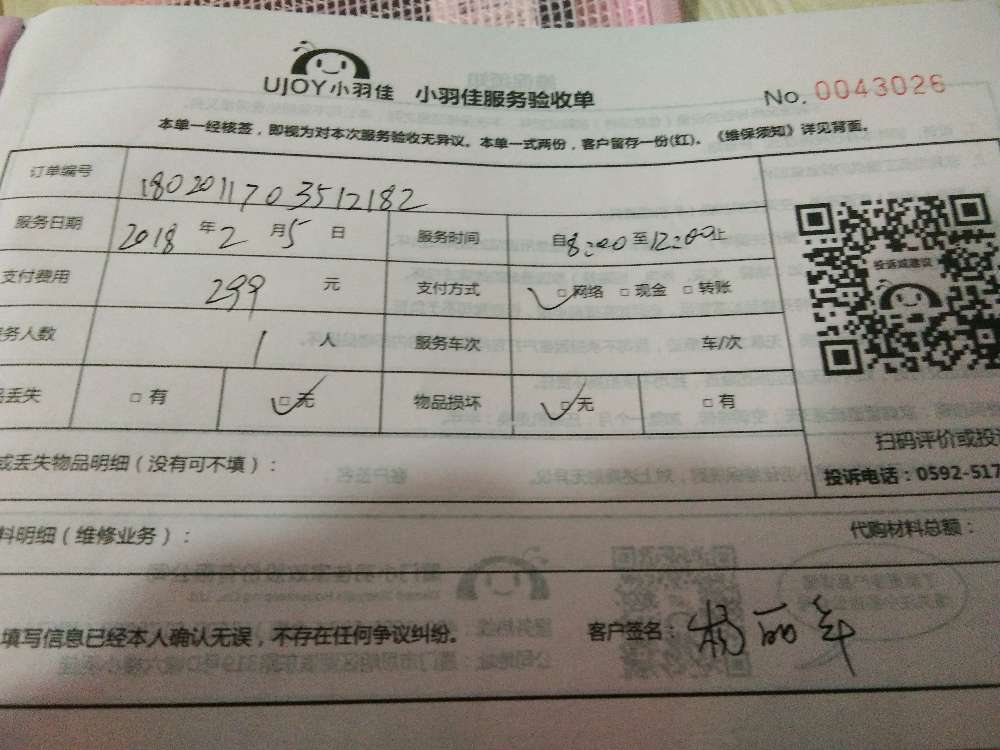 UJOY小羽佳 小羽佳服务验收单 No. 0043026
本单一经核签，即视为对本次服务验收无异议。本单一式两份，客户留存一份(红)。《维保须知》详见背面。
订单编号 1802011703512182
服务日期 2018 年 2 月 5 日 服务时间 自8:00至12:00止
支付费用 299 元 支付方式 □网络 □现金 □转账
务人数 1 人 服务车次 车/次
丢失 □有 □无 物品损坏 □无 □有
投诉或建议
扫码评价或投
或丢失物品明细（没有可不填）： 投诉电话：0592-517
料明细（维修业务）： 代购材料总额：
填写信息已经本人确认无误，不存在任何争议纠纷。 客户签名： 杨丽